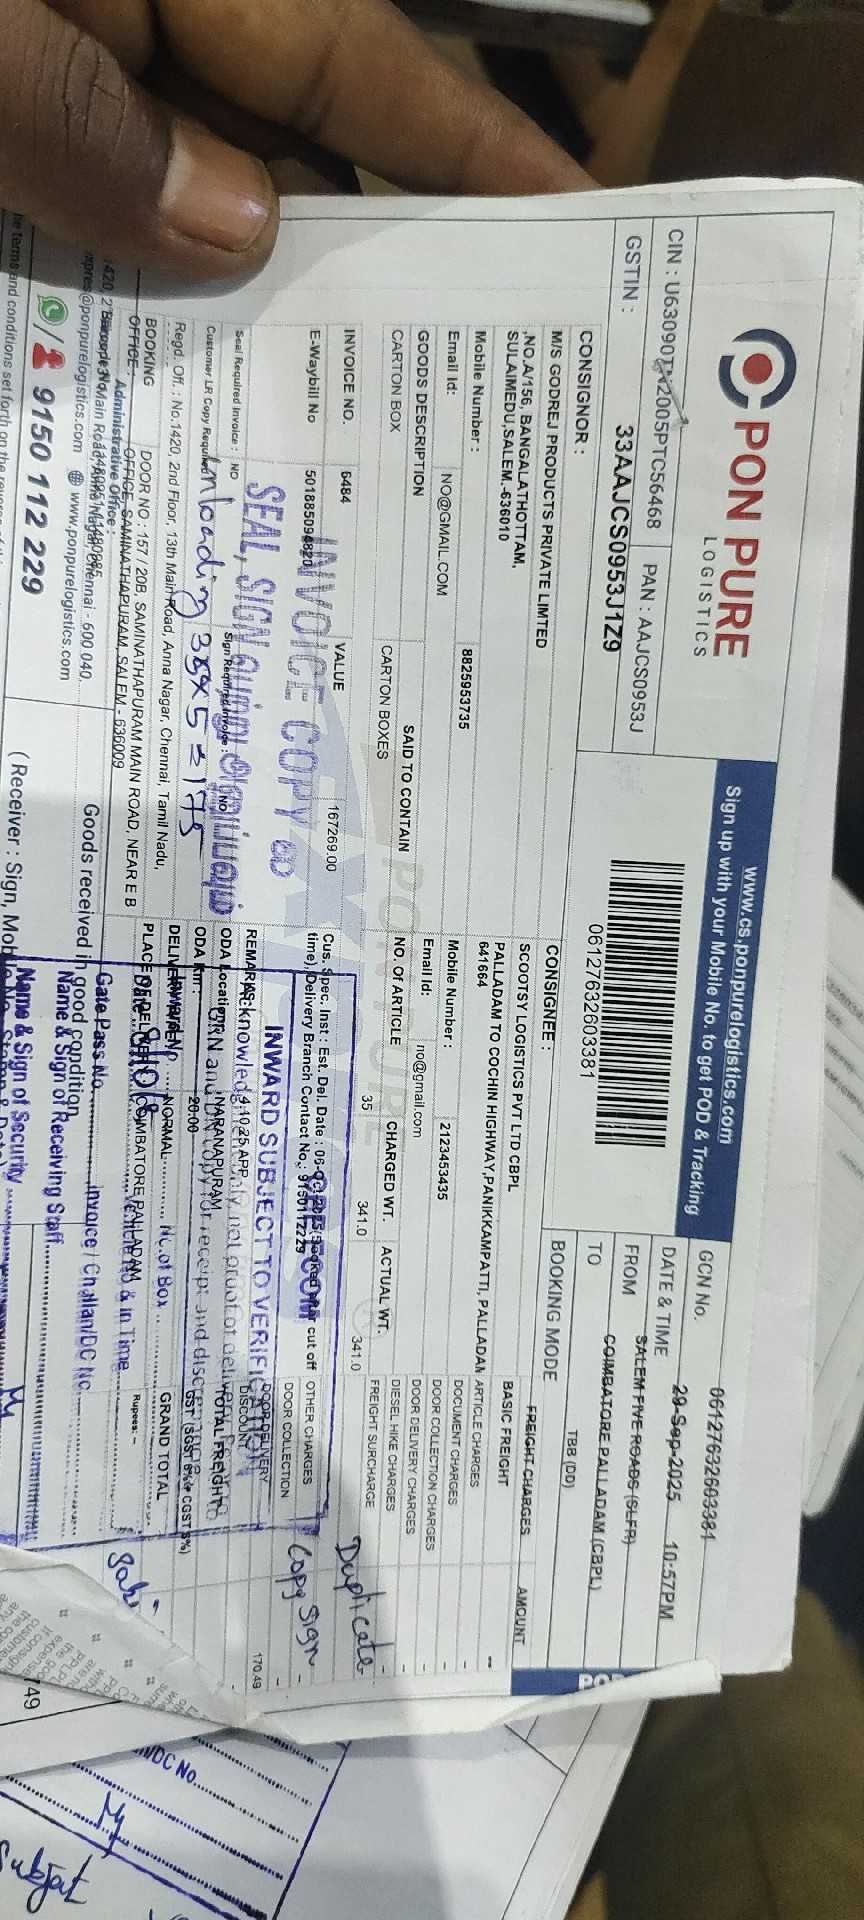 PON PURE
LOGISTICS
CIN : U63090TN2005PTC56468
PAN : AAJCS0953J
GSTIN :
33AAJCS0953J1Z9
www.cs.ponpurelogistics.com
Sign up with your Mobile No. to get POD & Tracking
06127632603381
GCN No.
06127632603381
DATE & TIME
29-Sep-2025 10:57PM
FROM
SALEM FIVE ROADS (SLFR)
TO
COIMBATORE PALLADAM (CBPL)
BOOKING MODE
TBB (DD)
CONSIGNOR :
M/S GODREJ PRODUCTS PRIVATE LIMTED
,NO.A/156, BANGALATHOTTAM,
SULAIMEDU,SALEM.-636010
Mobile Number :
8825953735
Email Id:
NO@GMAIL.COM
CONSIGNEE :
SCOOTSY LOGISTICS PVT LTD CBPL
PALLADAM TO COCHIN HIGHWAY,PANIKKAMPATTI, PALLADAM
641664
Mobile Number :
2123453435
Email Id:
no@gmail.com
FREIGHT CHARGES
AMOUNT
BASIC FREIGHT
--
ARTICLE CHARGES
-
DOCUMENT CHARGES
-
DOOR COLLECTION CHARGES
DOOR DELIVERY CHARGES
-
DIESEL HIKE CHARGES
-
FREIGHT SURCHARGE
-
OTHER CHARGES
-
DOOR COLLECTION
DOOR DELIVERY
170.49
DISCOUNT
TOTAL FREIGHT
-
GRAND TOTAL
Rupees: --
GOODS DESCRIPTION
SAID TO CONTAIN
NO. OF ARTICLE
CHARGED WT.
ACTUAL WT.
CARTON BOX
CARTON BOXES
35
341.0
341.0
INVOICE NO.
6484
VALUE
167269.00
E-Waybill No
501885094820
INVOICE COPY
SEAL, SIGN
Seal Required Invoice : NO
Sign Required Invoice : NO
Customer LR Copy Required
Unloading 35X5=175
Duplicate
Copy Sign
Cus. Spec. Inst : Est. Del. Date :
cut off
time), Delivery Branch Contact No.: 9150112229
REMARKS:
4.10.25 APP
ODA Location:
NARANAPURAM
ODA Km:
20.00
NORMAL
COIMBATORE PALLADAM
INWARD SUBJECT TO VERIFICATION
No.of Box
Gate Pass No.
Invoice / Challan/DC No
Name & Sign of Receiving Staff
Name & Sign of Security
Regd. Off. : No.1420, 2nd Floor, 13th Main Road, Anna Nagar, Chennai, Tamil Nadu,
BOOKING
OFFICE:
DOOR NO : 157 / 20B, SAMINATHAPURAM MAIN ROAD, NEAR E B
OFFICE, SAMINATHAPURAM, SALEM - 636009
Administrative Office
Chennai - 600 040.
@ponpurelogistics.com
www.ponpurelogistics.com
9150 112 229
Goods received in good condition
(Receiver : Sign,
149